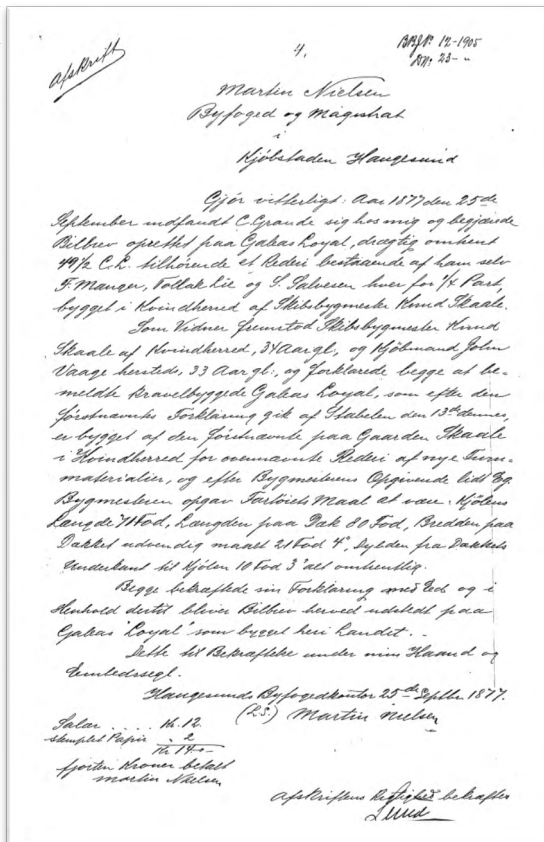 Afskrift
4.
12-1905
23- "
Martin Nielsen
Byfoged og Magistrat
i
Kjöbstaden Haugesund
Gjör vitterligt: Aar 1877 den 25de
September indfandt C. Grande sig hos mig og begjærede
Bilbrev oprettet paa Galeas Loyal, drægtig omhent
49 1/2 C.L. tilhörende et Rederi bestaaende af ham selv
F. Manger, Lie og S. Salvesen hver for 1/4 Part,
bygget i Kvindherred af Skibsbygmester Knud Skaale.
Som Vidner fremstod Skibsbygmester Knud
Skaale af Kvindherred, 34 Aar gl., og Kjöbmand John
Vaage hersteds, 33 Aar gl:, og forklarede begge at be-
meldte kravelbyggede Galeas Loyal, som efter den
förstnævntes Forklaring gik af Stabelen den 13de dennes,
er bygget af den förstnævnte paa Gaarden Skaale
i Kvindherred for ovennævnte Rederi af nye
materialier, og efter Bygmesterens Opgivende lidt Eg.
Bygmesteren opgav Fartöiets Maal at være: Kjölens
Længde 71 Fod, Længden paa Dæk 80 Fod, Bredden paa
Dækket udvendig maalt 21 Fod 4", Dybden fra Dækkets
Underkant til Kjölen 10 Fod 3" alt omhentlig.
Begge bekræftede sin Forklaring med Ed og i
Henhold dertil bliver Bilbrev herved udstedt paa
Galeas "Loyal" som bygget her i Landet. -
Dette til Bekræftelse under min Haand og
Embedssegl.
Haugesunds Byfogedkontor 25de Septbr 1877.
(L.S.) Martin Nielsen
Salær .... Kr. 12
stemplet Papir . " 2
Kr 14.-
fjorten Kroner betalt
Martin Nielsen
Afskriftens Rigtighed bekræftes